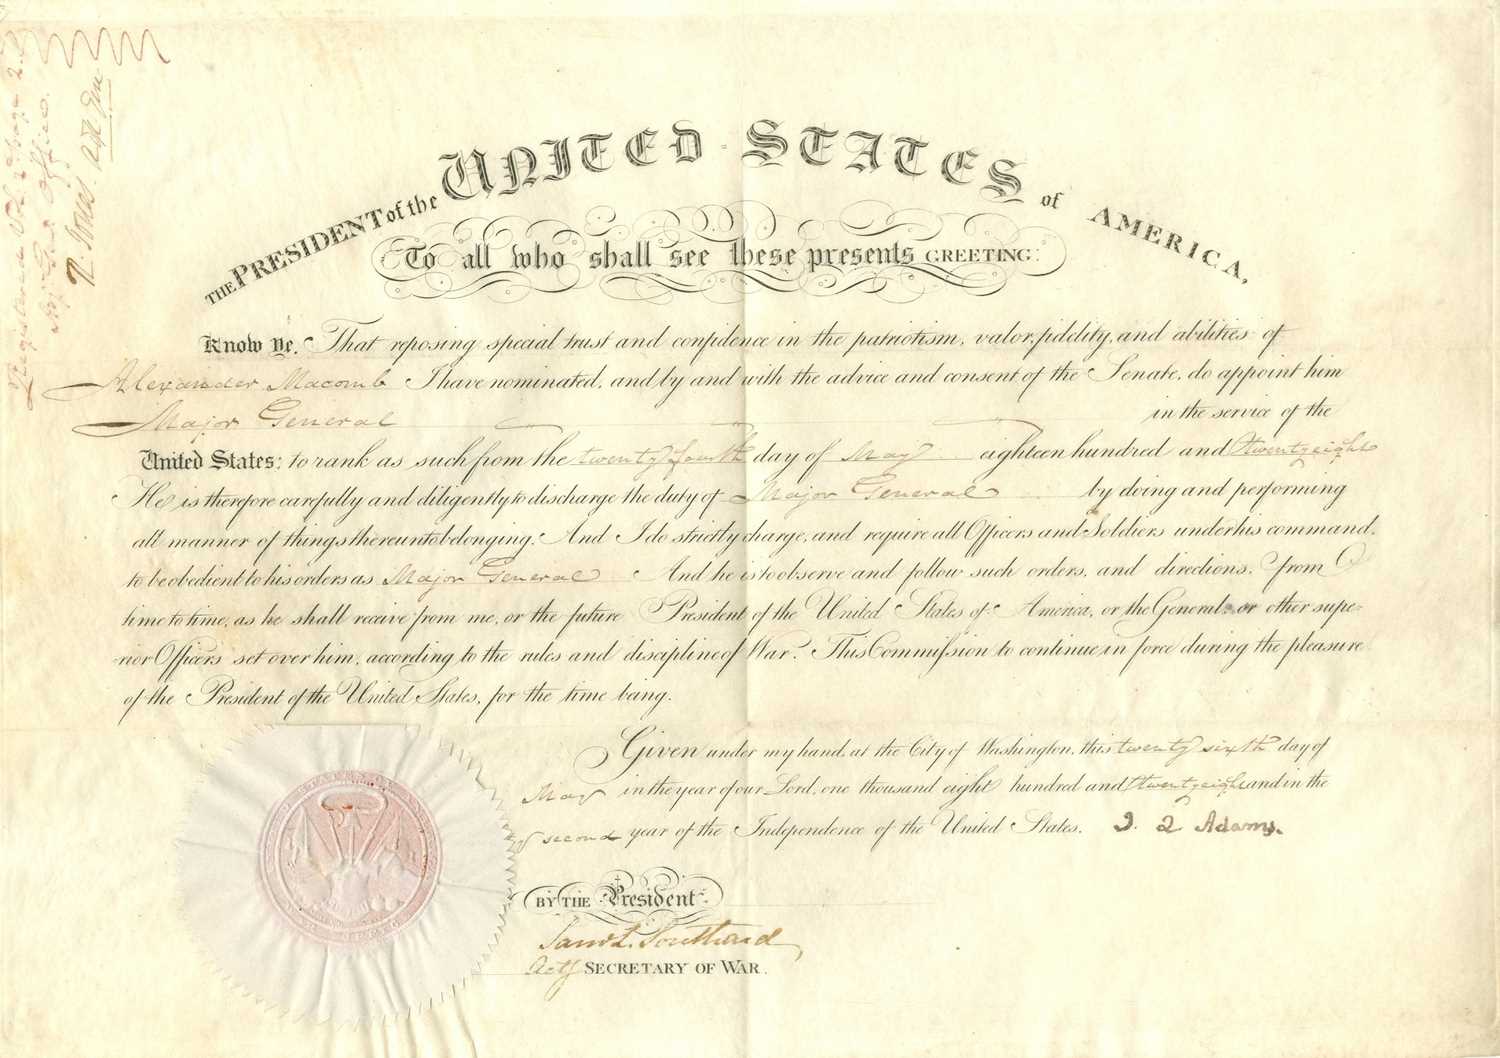 Registered Vol. 2. Page 2.
Adj. Genl. Office.
R. Jones Adj. Gen
THE PRESIDENT of the UNITED STATES of AMERICA,
To all who shall see these presents GREETING:
Know Ye, That reposing special trust and confidence in the patriotism, valor, fidelity, and abilities of
Alexander Macomb I have nominated, and by and with the advice and consent of the Senate, do appoint him
Major General in the service of the
United States: to rank as such from the twenty fourth day of May eighteen hundred and twenty eight
He is therefore carefully and diligently to discharge the duty of Major General by doing and performing
all manner of things thereunto belonging. And I do strictly charge, and require all Officers and Soldiers under his command,
to be obedient to his orders as Major General And he is to observe and follow such orders, and directions, from
time to time, as he shall receive from me, or the future President of the United States of America, or the General or other supe-
rior Officers set over him, according to the rules and discipline of War. This Commission to continue in force during the pleasure
of the President of the United States, for the time being.
Given under my hand, at the City of Washington, this twenty sixth day of
May in the year of our Lord, one thousand eight hundred and twenty eight and in the
second year of the Independence of the United States. J. Q. Adams.
BY THE President
Saml L. Southard
Actg SECRETARY OF WAR.